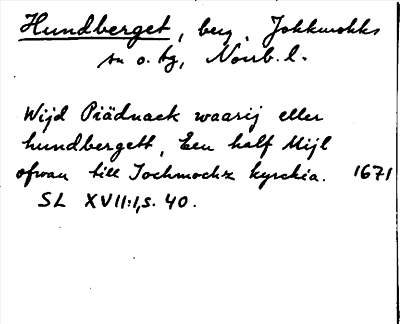 Hundberget, berg, Jokkmokks
sn o. tg, Norrb. l.
Wijd Piädnack waarij eller
hundbergett, Een half Mijl
ofwan till Jochmochz kyrckia. 1671
SL XVII:1, s. 40.